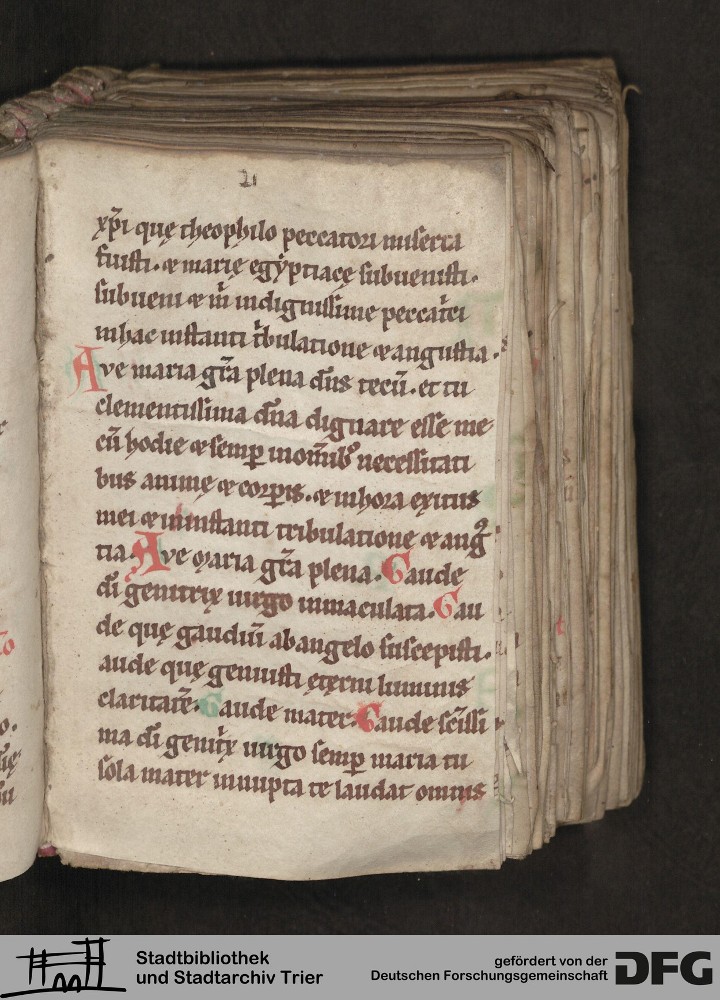 21
xp̄i quę theophilo peccatori miserta
fuisti. & marię egẏptiacę subuenisti.
subueni & m̄ indignissime peccat̄ci
in hac instanti t̄bulatione & angustia.
Ave maria gr̄a plena dn̄s tecū. et tu
clementissima dn̄a dignare esse me
cū hodie & semp̄ in om̄ib; necessitati
bus animę & corꝑis. & in hora exitus
mei & in instanti tribulatione & angꝰ
tia. Ave maria gr̄a plena. Gaude
dī genitrix uirgo inmaculata. Gau
de quę gaudiū ab angelo suscepisti.
aude quę genuisti ęterni luminis
claritatē. Gaude mater. Gaude sc̄issi
ma dī genit̄x uirgo semp̄ maria tu
sola mater innupta te laudat omnis
Stadtbibliothek
und Stadtarchiv Trier
gefördert von der
Deutschen Forschungsgemeinschaft
DFG